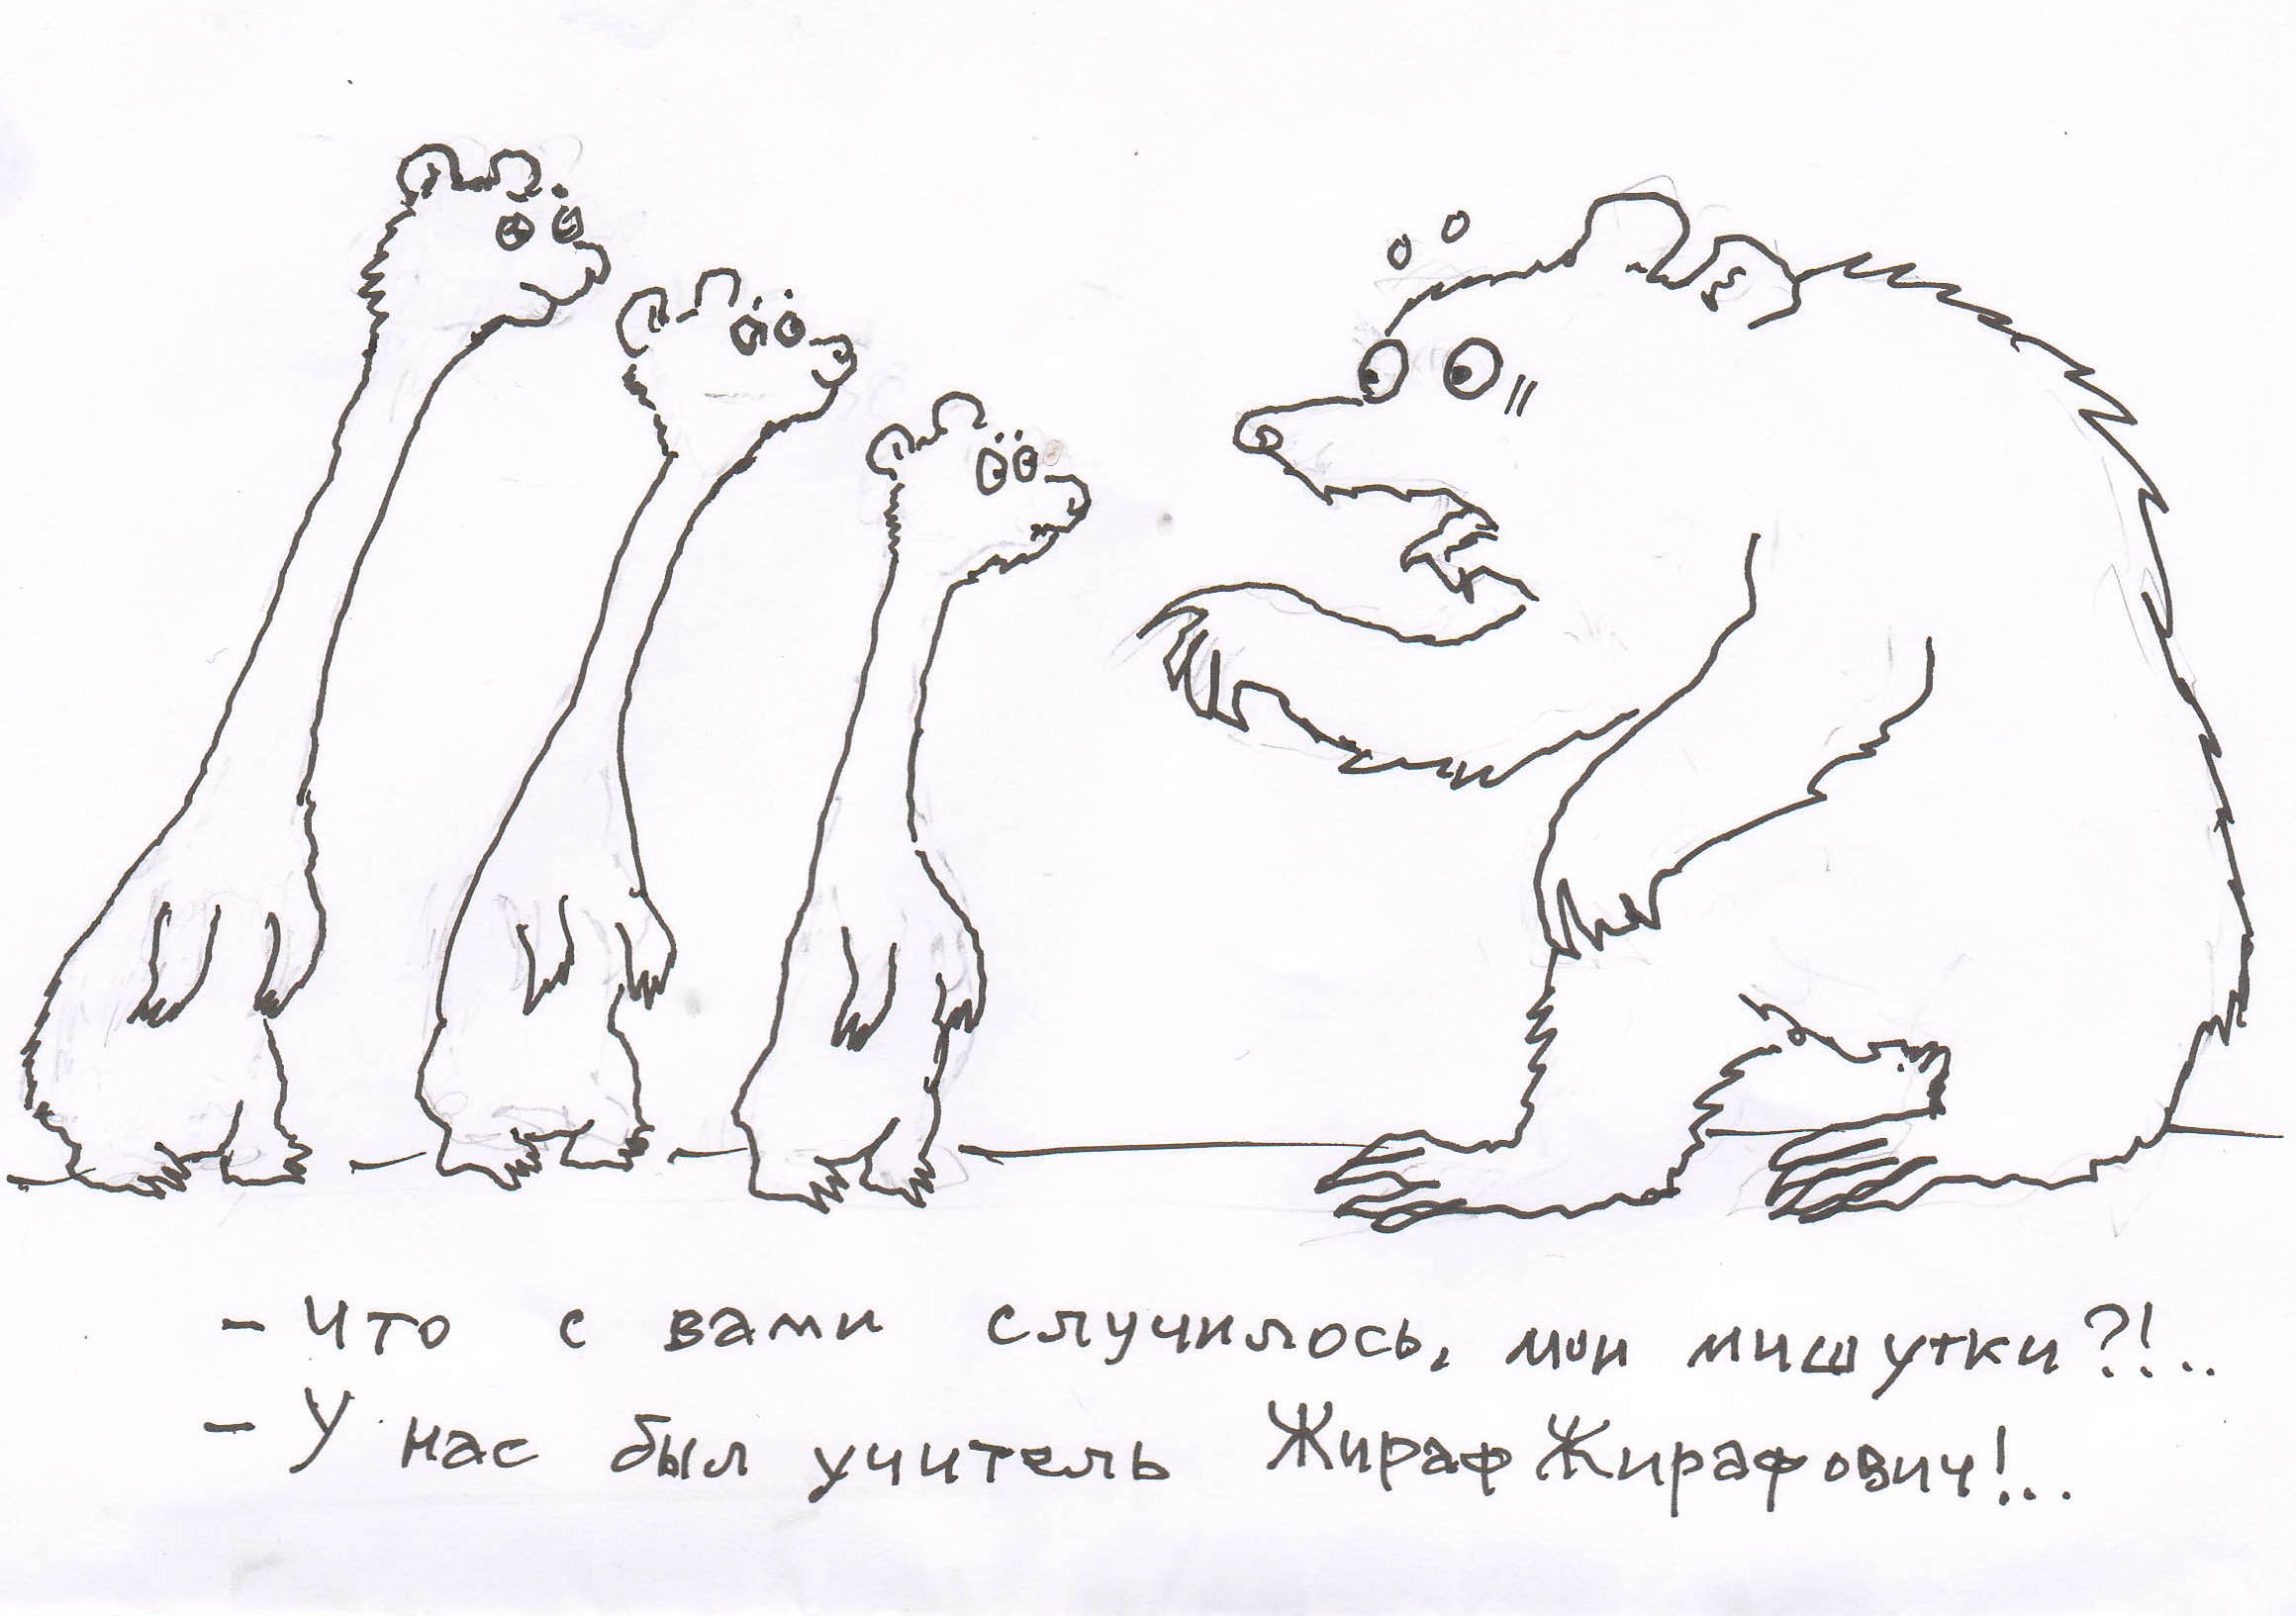 - Что с вами случилось, мои мишутки?!..
- У нас был учитель Жираф Жирафович!...